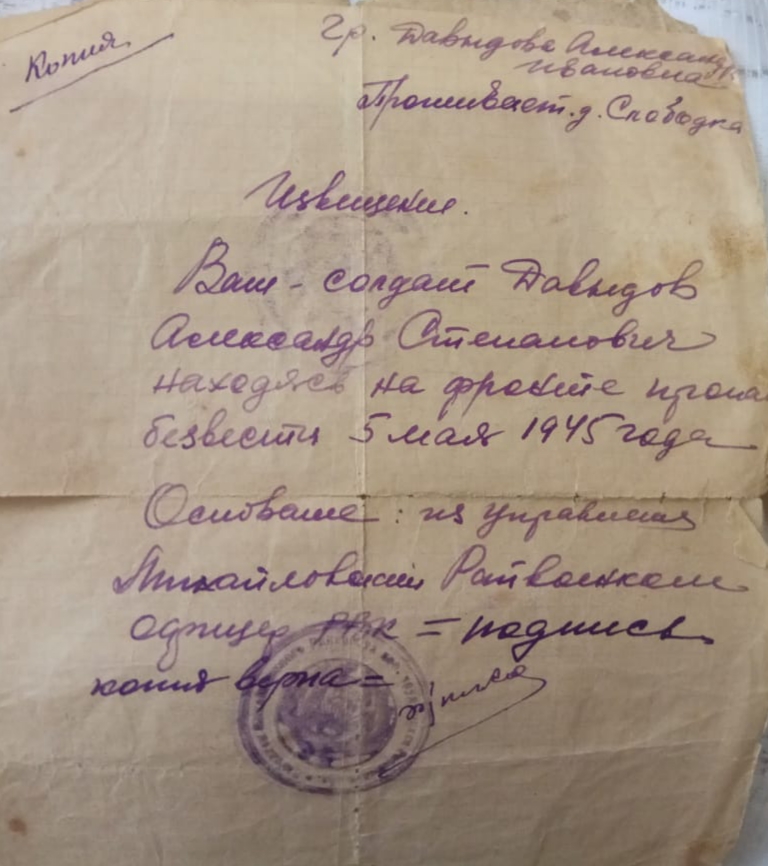 Копия
Гр. Давыдова Александра
Ивановна
Проживает. д. Слободка
Извищение.
Ваш - солдат Давыдов
Александр Степанович
находясь на фронте пропа
безвести 5 мая 1945 года
Основание: из управления
Михайловский Райвоенком
офицер РВК = подпись
копия верна =